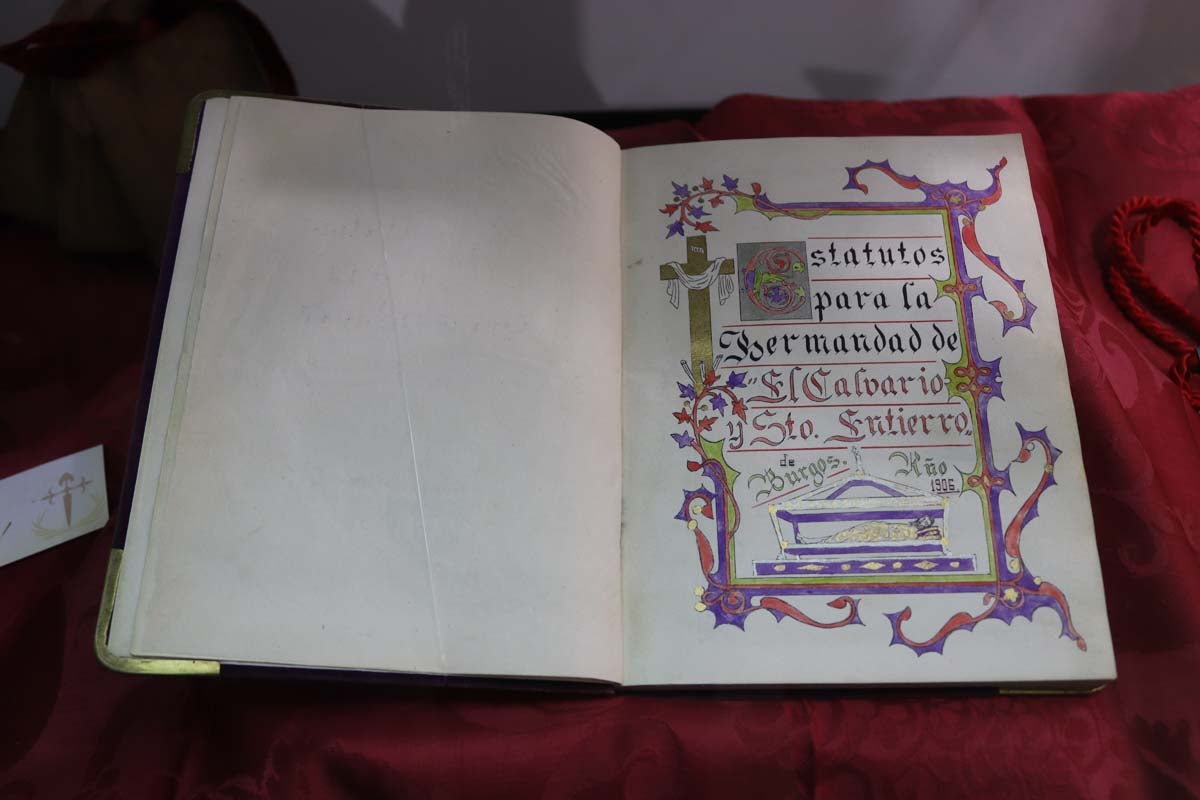 Estatutos
para la
Hermandad de
"El Calvario
y Sto. Entierro."
de
Burgos. Año
1906.